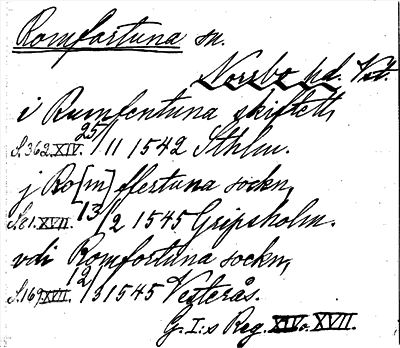 Romfortuna sn.
Norrbo hd. Vst.
i Rumfentuna skiftett,
S. 362. XIV. 25/11 1542 Sthlm.
j Ro[m]ffertuna sockn,
S. 81. XVII. 13/2 1545 Gripsholm.
vdi Romfortuna sockn,
S. 169 XVII. 12/3 1545 Vesterås.
G. I:s Reg. XIV o. XVII.